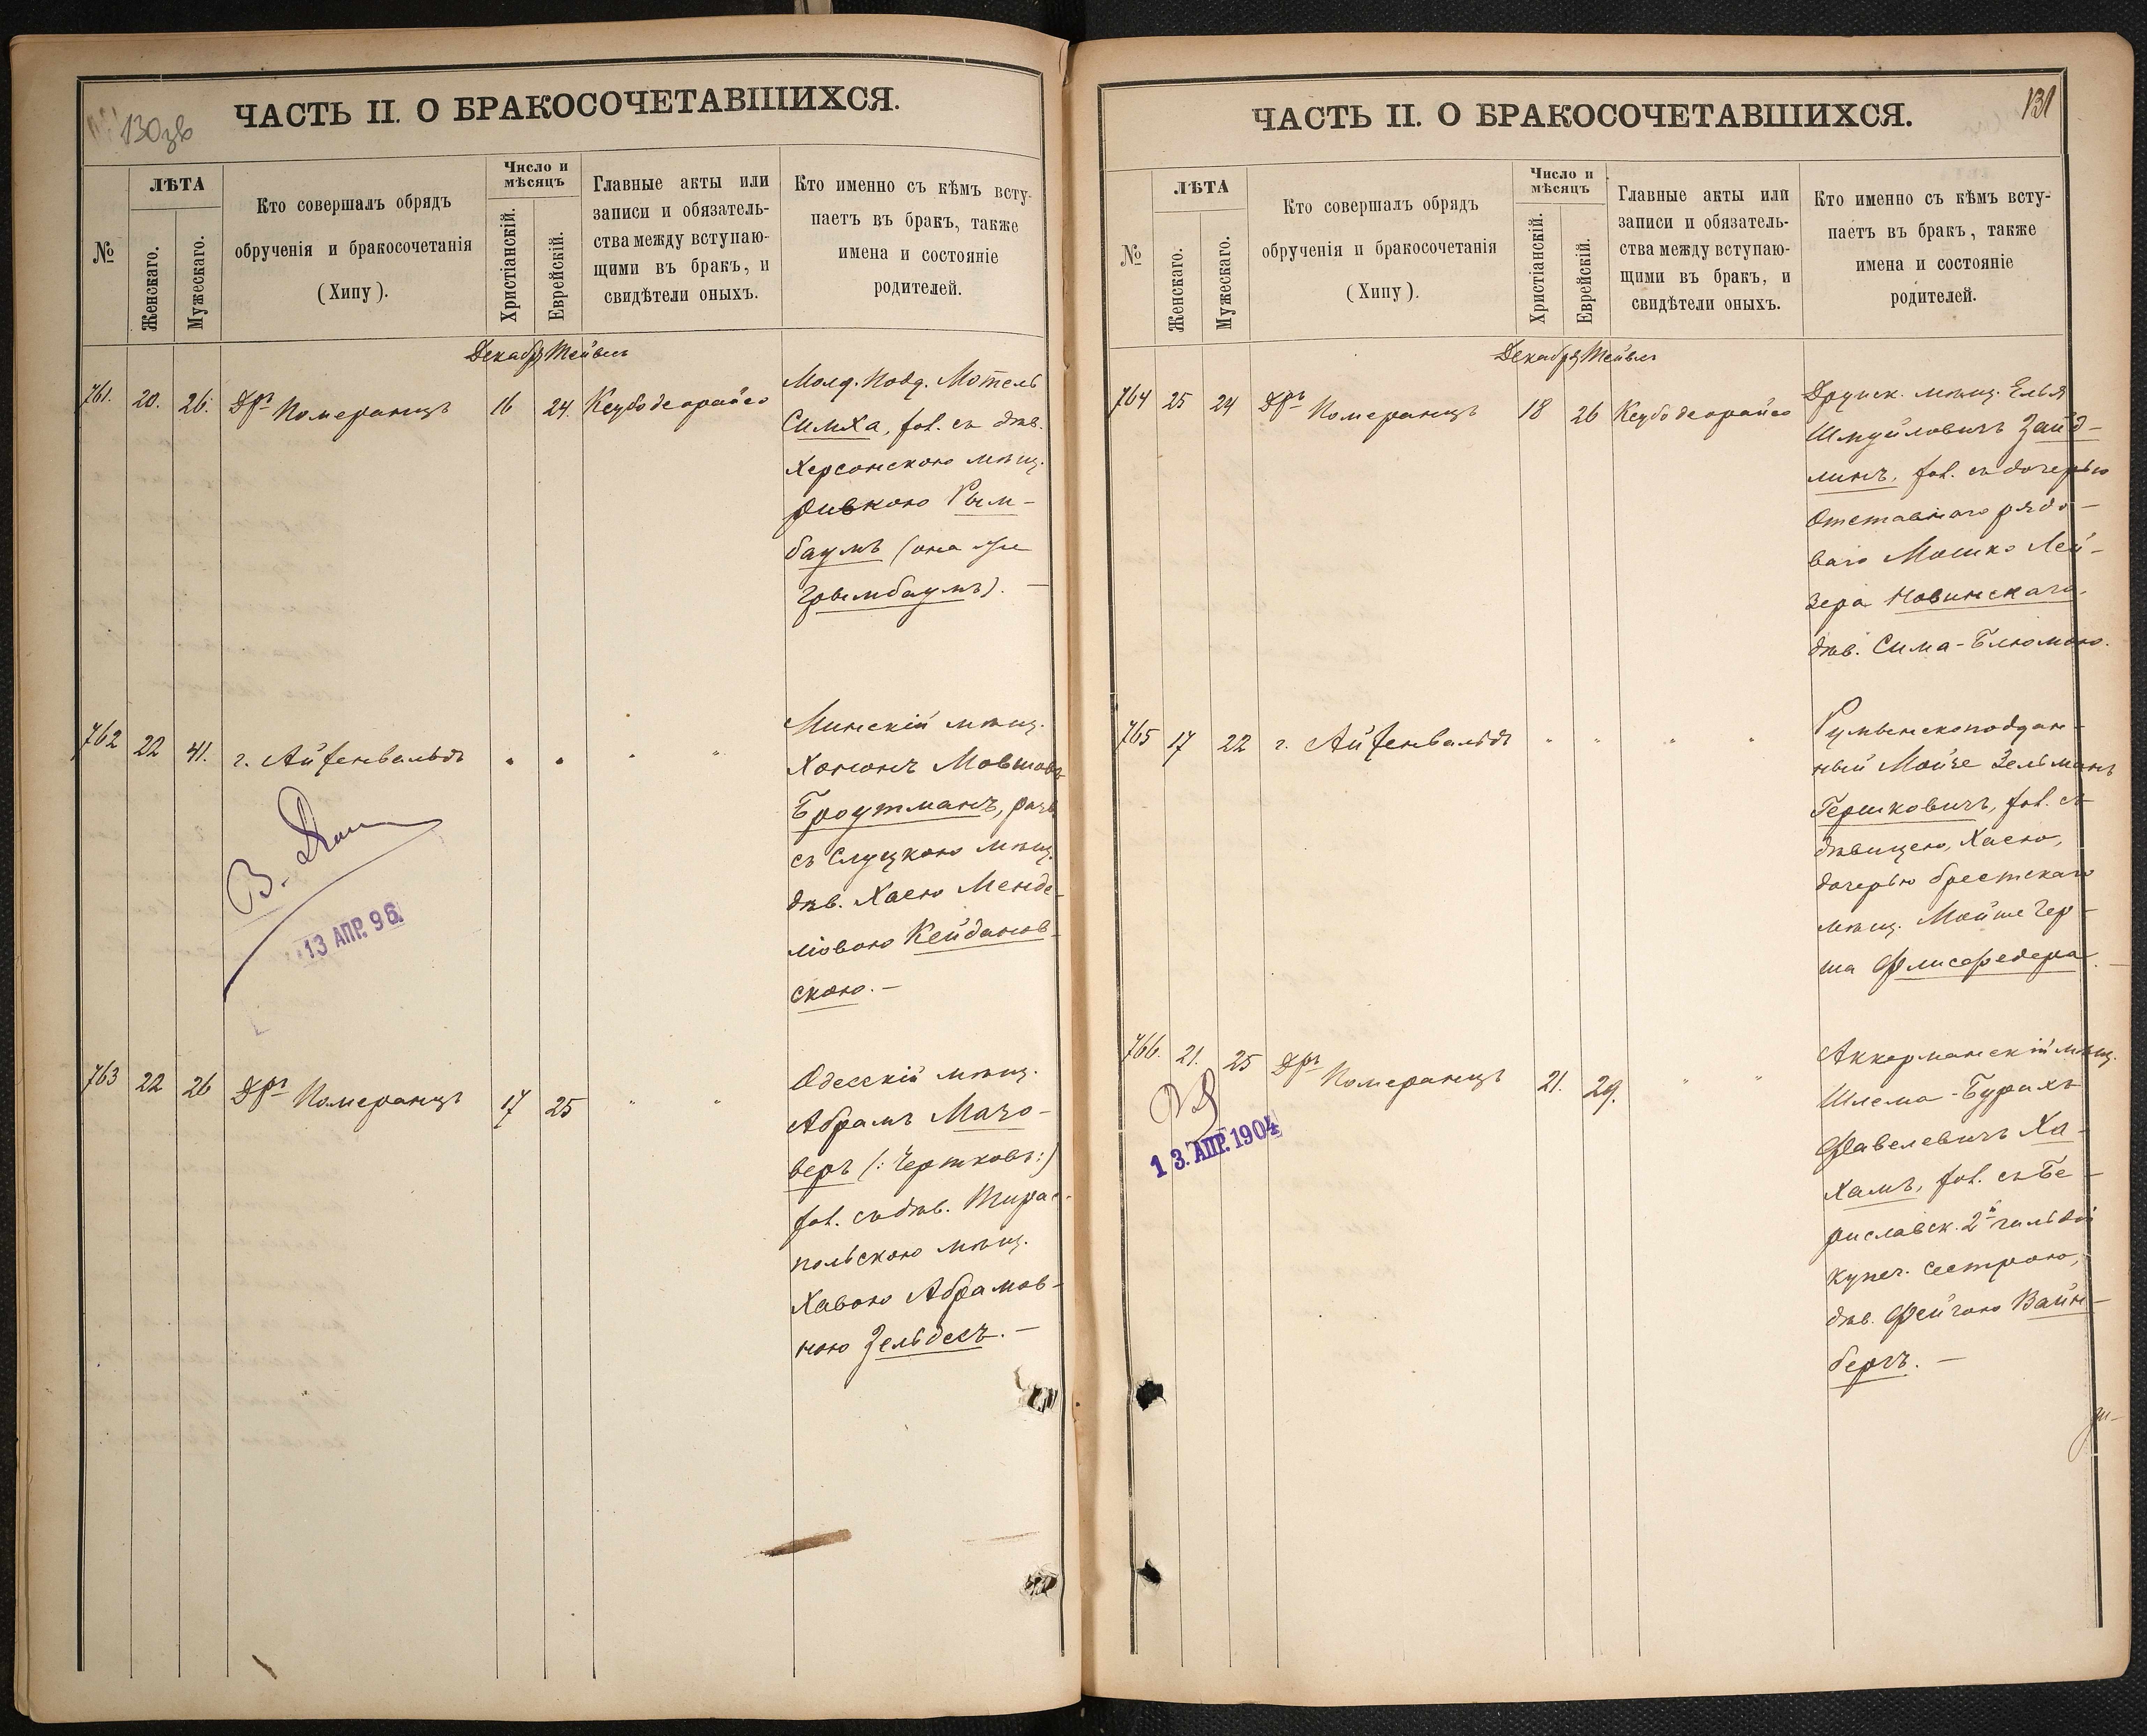 130 об
ЧАСТЬ II. О БРАКОСОЧЕТАВШИХСЯ.
№
ЛѢТА
Женскаго.
Мужескаго.
Кто совершалъ обрядъ
обрученія и бракосочетанія
(Хипу).
Число и
мѣсяцъ
Христіанскій.
Еврейскій.
Главные акты или
записи и обязатель-
ства между вступаю-
щими въ бракъ, и
свидѣтели оныхъ.
Кто именно съ кѣмъ всту-
паетъ въ бракъ, также
имена и состояніе
родителей.
Декабрь Тейвесъ
761. 20. 26. Дръ Померанцъ 16 24. Кеубо деорайсо
Молд. подд. Мотель
Симха, хол. съ дѣв.
Херсонскою мѣщ.
Ривкою Рым-
баумъ (она же
Грымбаумъ). —
762 22 41. г. Айзенвальдъ " " " "
Минскій мѣщ.
Хононъ Мовшовъ
Броутманъ, разв.
съ Слуцкою мѣщ.
дѣв. Хаею Менде-
лiовою Кейданов-
скою. —
13 АПР. 96.
763 22 26 Дръ Померанцъ 17 25 " "
Одесскій мѣщ.
Абрамъ Мазо-
веръ (: Чертковъ :)
хол. съ дѣв. Тирас-
польскою мѣщ.
Хавою Абрамов-
ною Зельдесъ. —
131
ЧАСТЬ II. О БРАКОСОЧЕТАВШИХСЯ.
№
ЛѢТА
Женскаго.
Мужескаго.
Кто совершалъ обрядъ
обрученія и бракосочетанія
(Хипу).
Число и
мѣсяцъ
Христіанскій.
Еврейскій.
Главные акты или
записи и обязатель-
ства между вступаю-
щими въ бракъ, и
свидѣтели оныхъ.
Кто именно съ кѣмъ всту-
паетъ въ бракъ, также
имена и состояніе
родителей.
Декабрь Тейвесъ
764 25 24 Дръ Померанцъ 18 26 Кеубо деорайсо
Друиск. мѣщ. Элья
Шмуйловичъ Зайд-
линъ, хол. съ дочерью
Отставнаго рядо-
ваго Мошко Лей-
зера Новинскаго
дѣв. Сима-Блюмою.
765 17 22 г. Айзенвальдъ " " " "
Румынскоподдан-
ный Мойзе Зельманъ
Гершковичъ, хол. съ
дѣвицею, Хаею,
дочерью брестскаго
мѣщ. Мойше Гер-
ша Флисфедера. —
766. 21. 25 Дръ Померанцъ 21. 29. " "
Аккерманскій мѣщ.
Шлема-Бурахъ
Файвелевичъ Ха-
хамъ, хол. съ Бе-
риславск. 2й гильдіи
купеч. сестрою,
дѣв. Фейгою Вайн-
бергъ. —
13. АПР. 1904